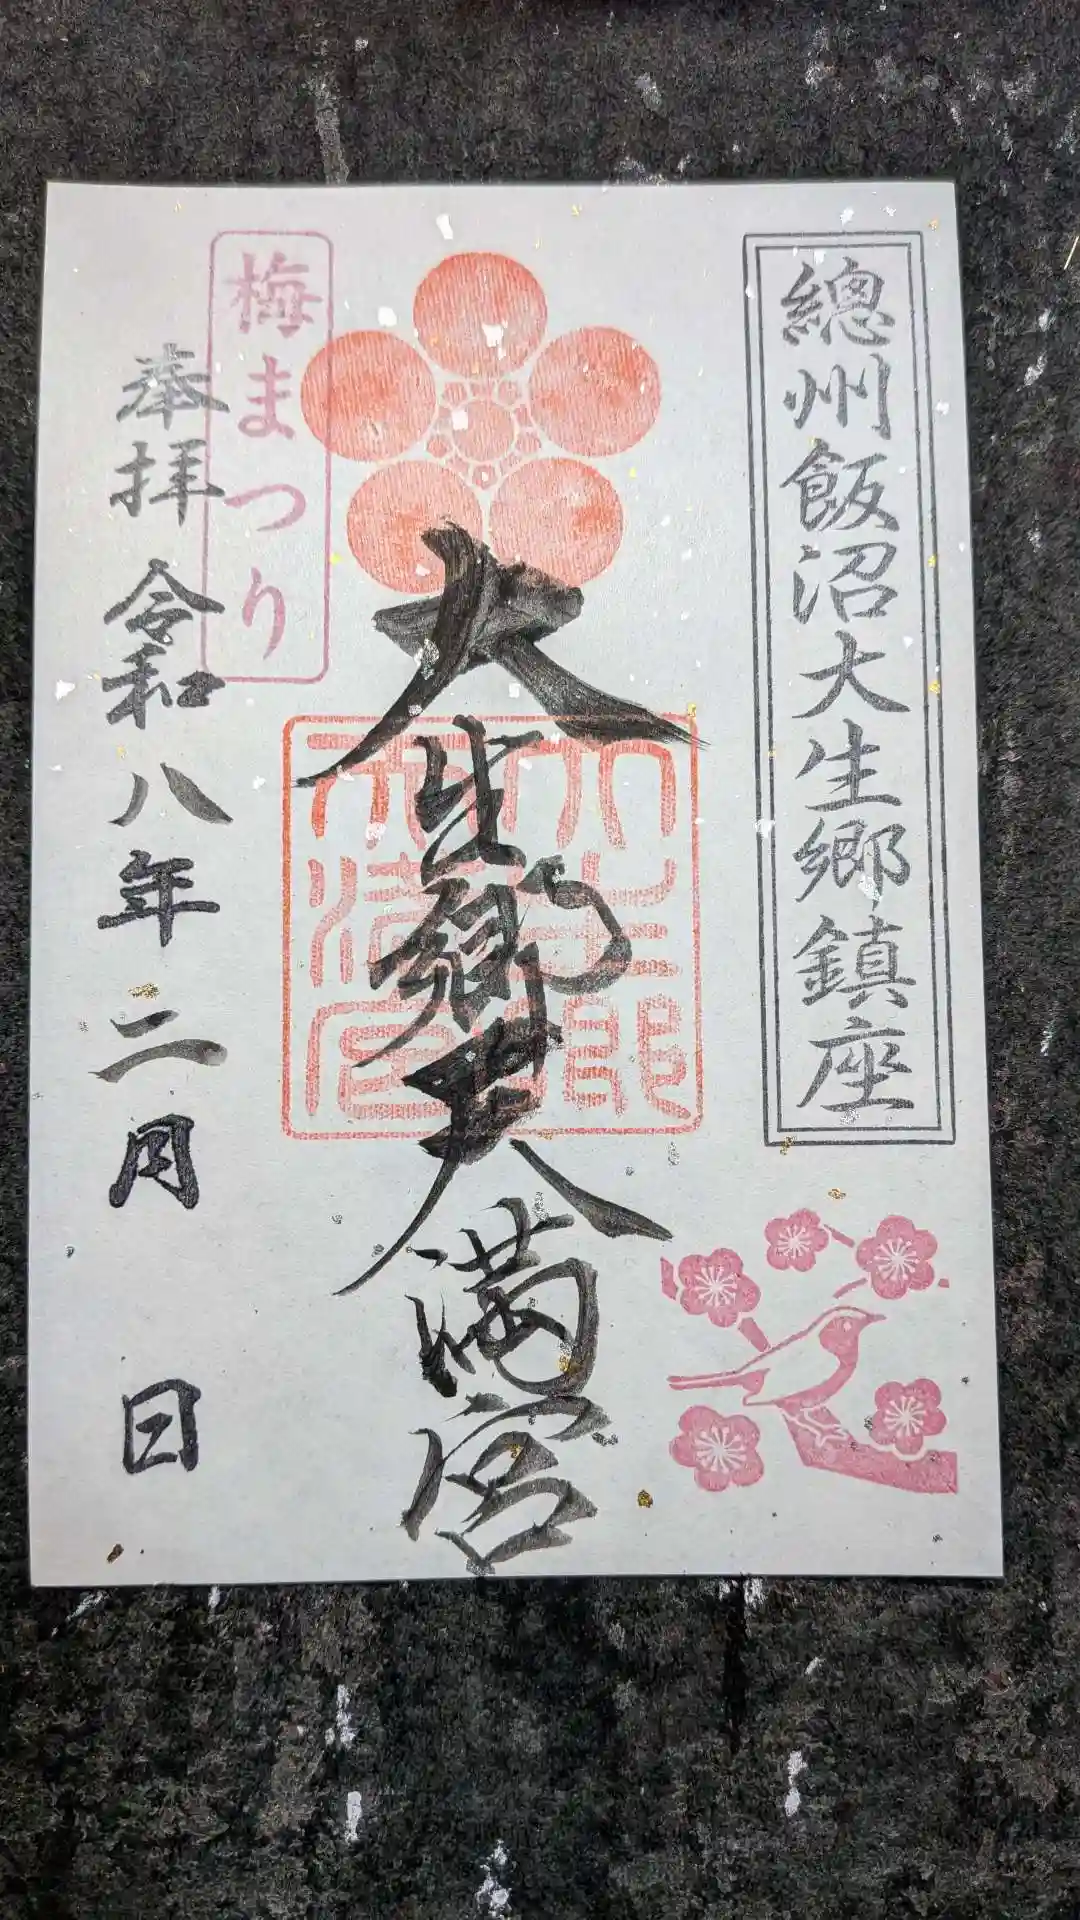 總州飯沼大生郷鎮座
大生郷天満宮
大生郷
天満宮
梅まつり
奉拝 令和八年二月 日